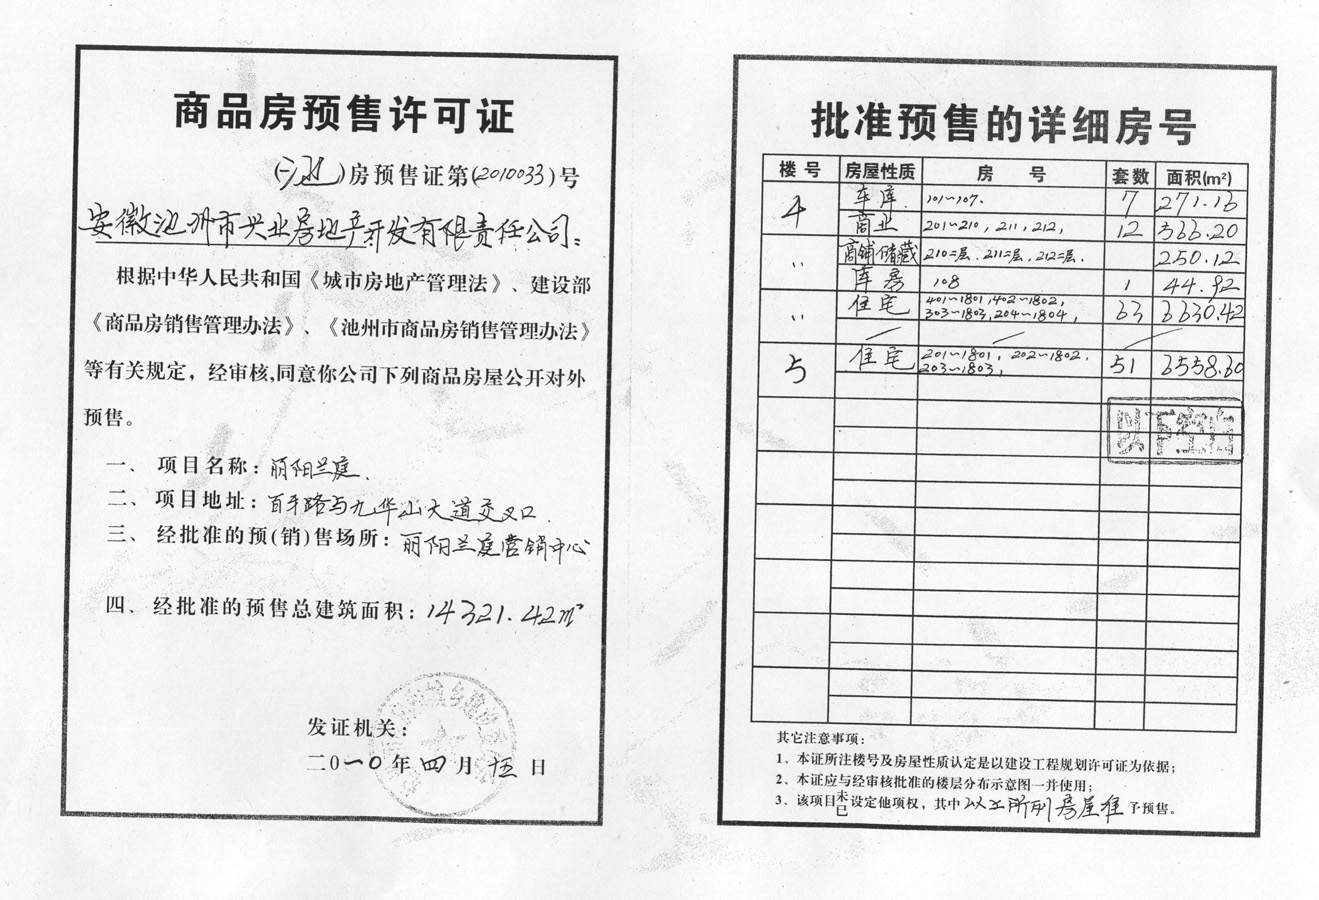 商品房预售许可证
(池)房预售证第(2010033)号
安徽池州市兴业房地产开发有限责任公司:
根据中华人民共和国《城市房地产管理法》、建设部
《商品房销售管理办法》、《池州市商品房销售管理办法》
等有关规定，经审核,同意你公司下列商品房屋公开对外
预售。
一、 项目名称: 丽阳兰庭.
二、 项目地址: 百牙路与九华山大道交叉口.
三、 经批准的预(销)售场所: 丽阳兰庭营销中心
四、 经批准的预售总建筑面积: 14321.42m²
发证机关:
二0一0年四月 日
批准预售的详细房号
楼号 房屋性质 房 号 套数 面积(m²)
4 车库. 101~107. 7 271.16
商业 201~210, 211, 212, 12 366.20
〃 商铺储藏 210二层. 211二层. 212二层. 250.12
库房 108 1 44.92
〃 住宅 401~1801, 402~1802, 303~1803, 204~1804, 63 6630.42
5 住宅 201~1801, 202~1802. 203~1803, 51 6558.60
以下空白
其它注意事项:
1、本证所注楼号及房屋性质认定是以建设工程规划许可证为依据;
2、本证应与经审核批准的楼层分布示意图一并使用;
3、该项目未已设定他项权，其中以上所列房屋准予预售。